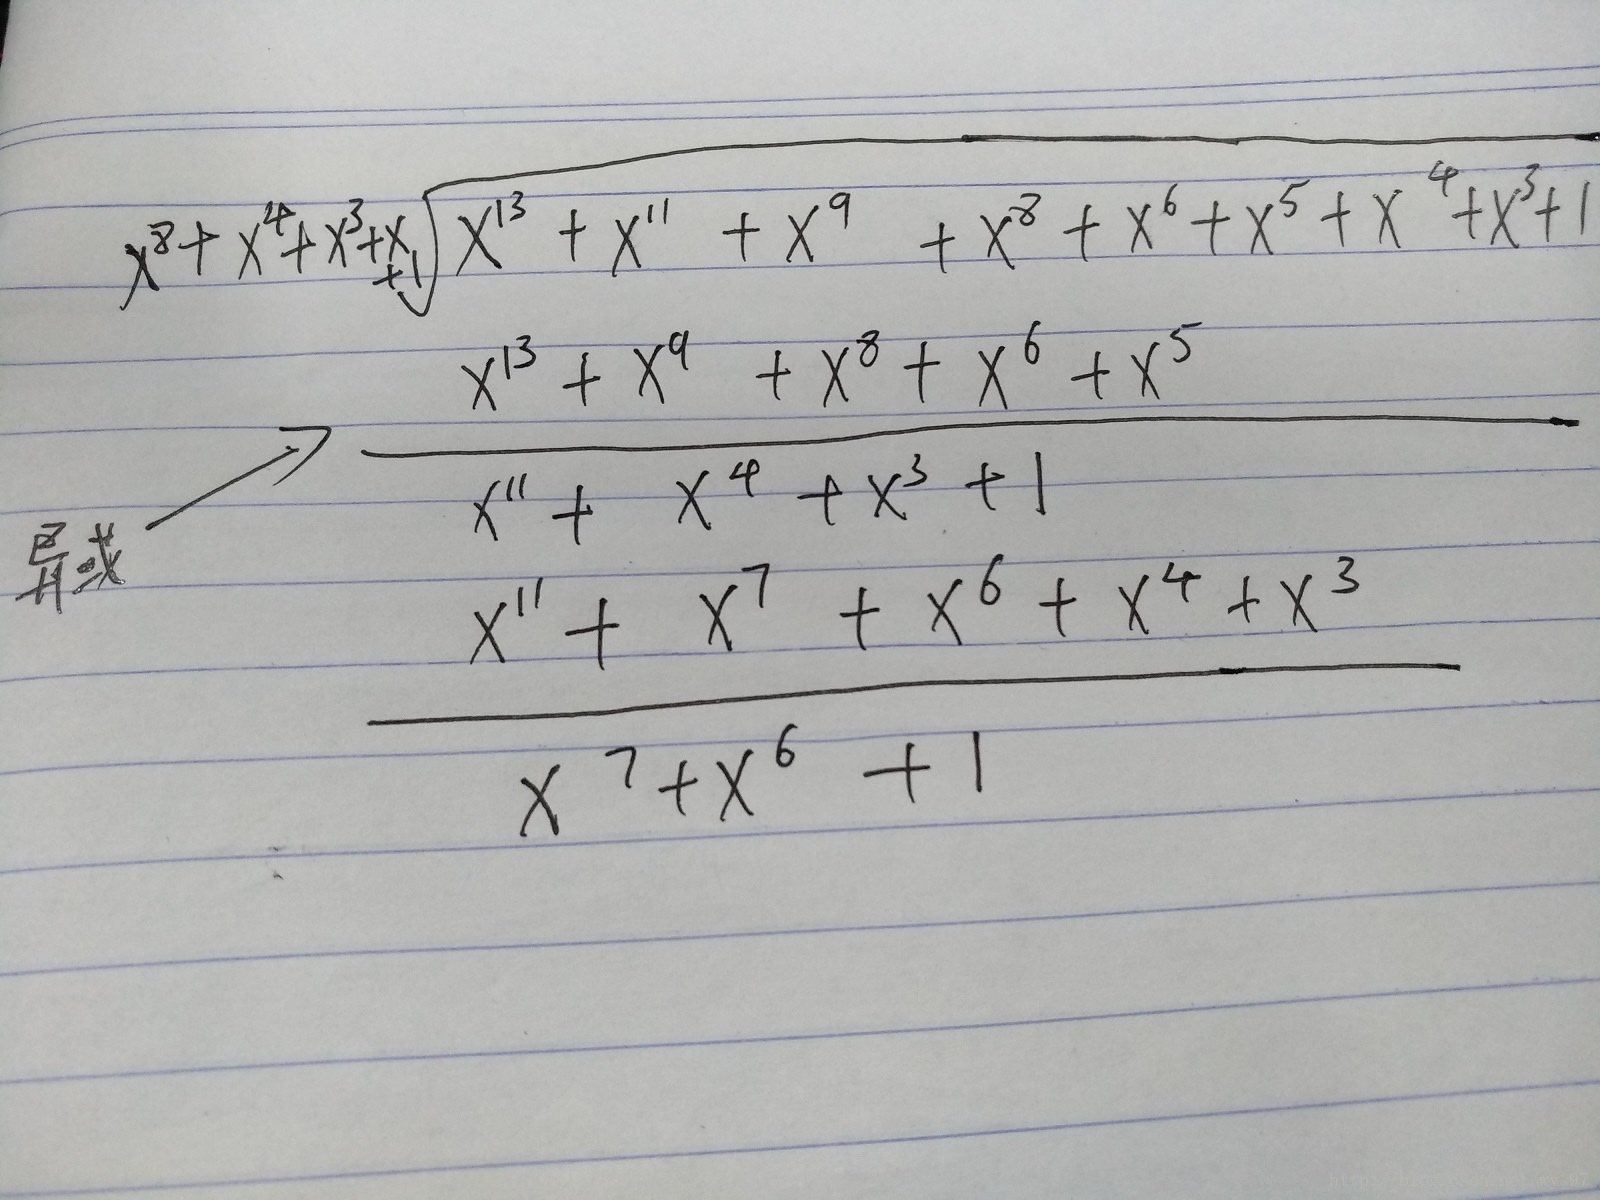 x⁸ + x⁴ + x³ + x + 1 √ x¹³ + x¹¹ + x⁹ + x⁸ + x⁶ + x⁵ + x⁴ + x³ + 1
x¹³ + x⁹ + x⁸ + x⁶ + x⁵
x¹¹ + x⁴ + x³ + 1
异或
x¹¹ + x⁷ + x⁶ + x⁴ + x³
x⁷ + x⁶ + 1